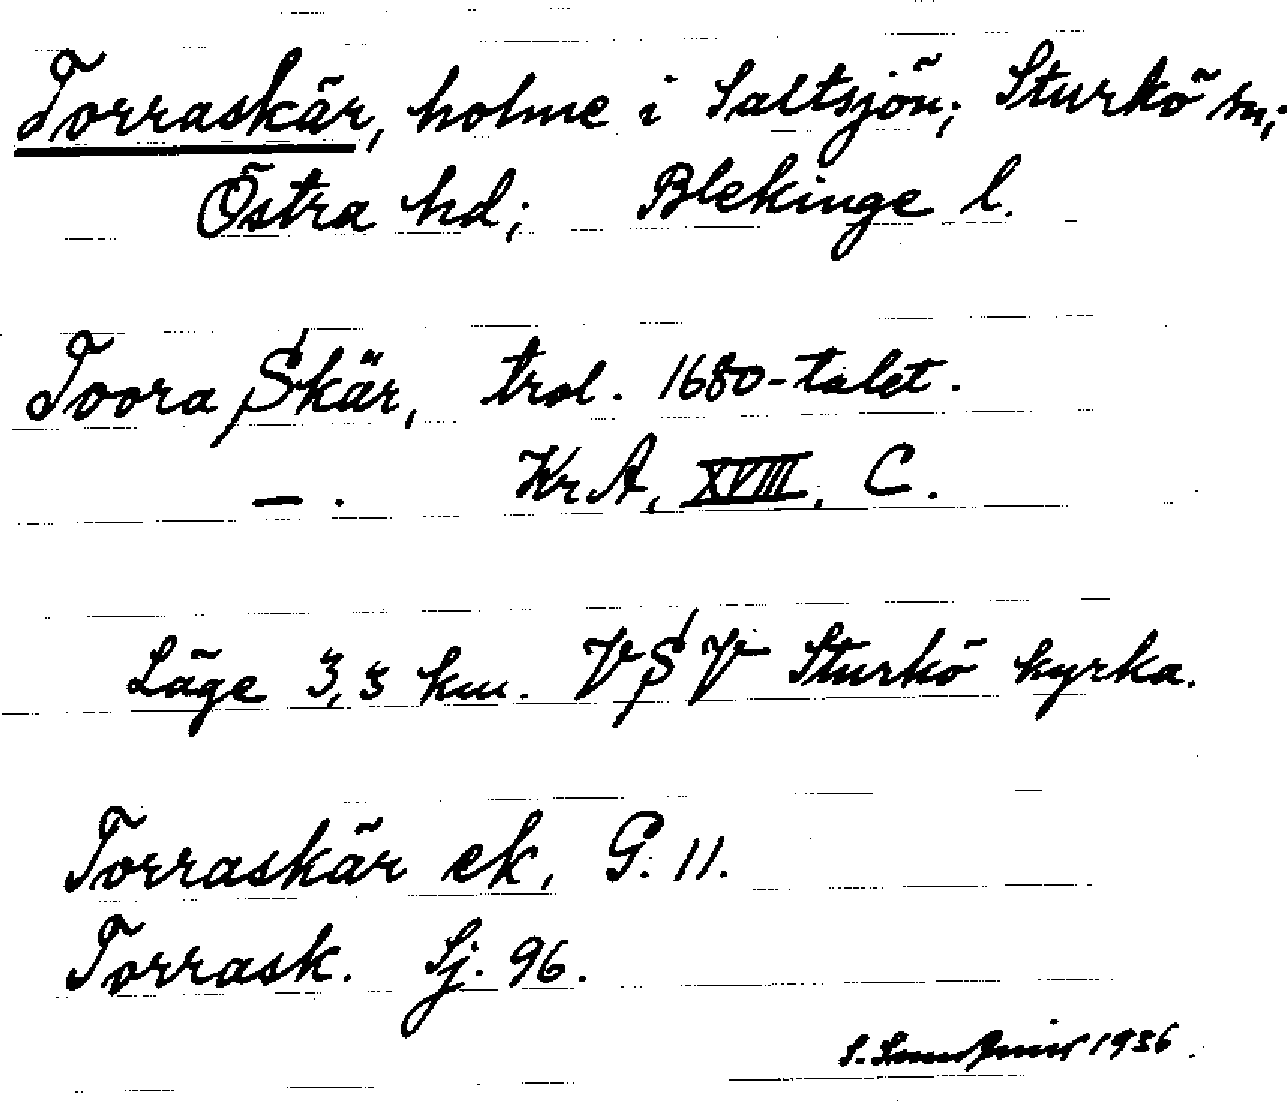 Torraskär, holme i Saltsjön; Sturkö sn;
Östra hd; Blekinge l.
Toora Skär, trol. 1680-talet.
— . Kr A, XVIII, C.
Läge 3,3 km. VSV Sturkö kyrka.
Torraskär ek, G. 11.
Torrask. Sj. 96.
S. 1936.